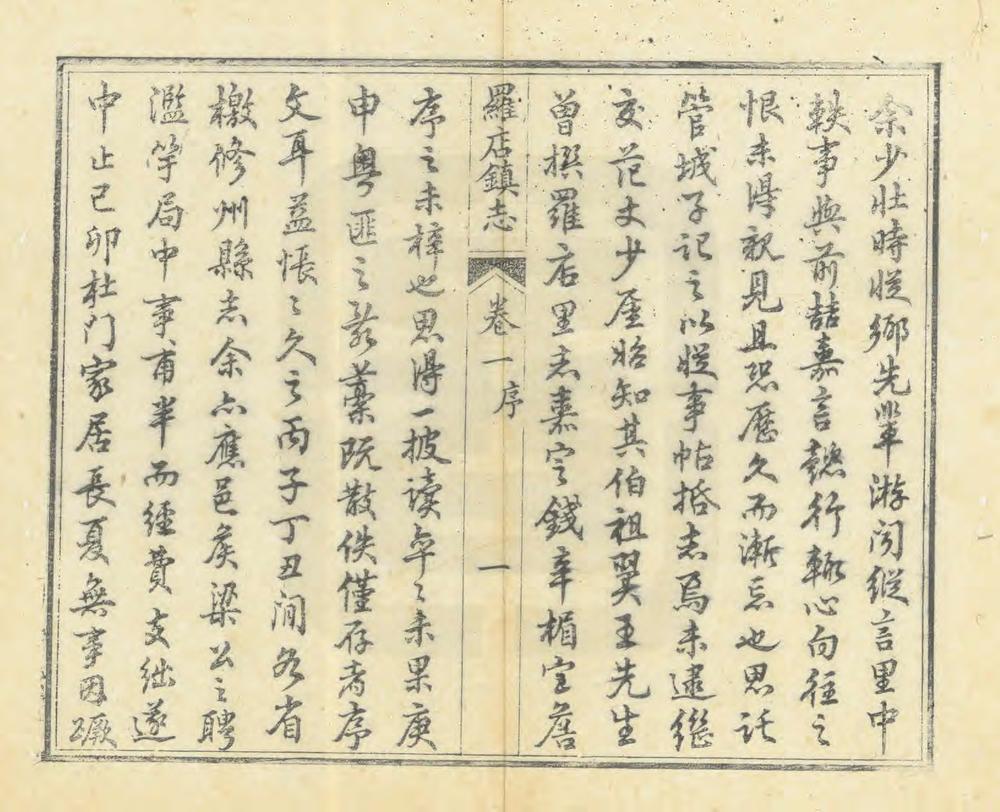 余少壯時從鄉先輩游闻縱言里中
軼事與前喆嘉言懿行輒心向往之
恨未得親見且恐歷久而漸忘也思託
管城子記之以從事帖括志焉未逮繼
交范丈少厓始知其伯祖翼王先生
曾撰羅店里志嘉定錢辛楣宫詹
羅店鎮志 卷一 序 一
序之未梓也思得一披读卒之未果庚
申粤匪之亂藳既散佚僅存者序
文耳益悵之久之丙子丁丑间各省
檄修州縣志余亦應邑矦梁公之聘
濫竽局中事甫半而經費支絀遂
中止己卯杜门家居長夏無事因